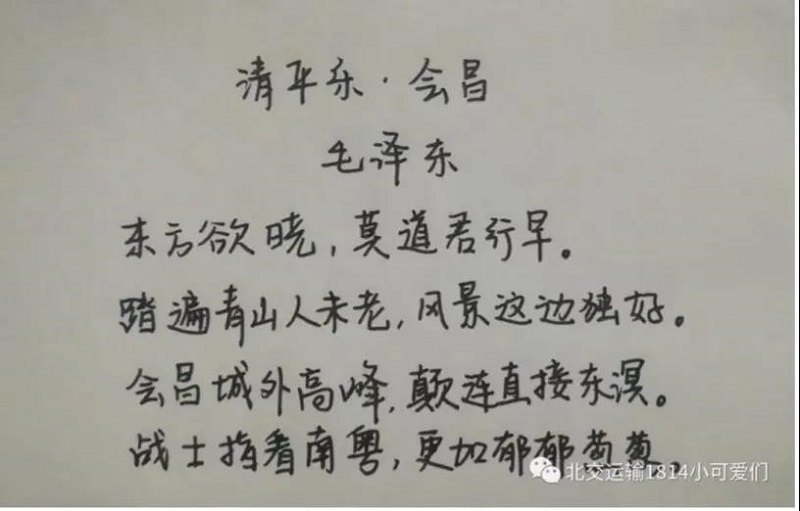 清平乐·会昌
毛泽东
东方欲晓,莫道君行早。
踏遍青山人未老,风景这边独好。
会昌城外高峰,颠连直接东溟。
战士指看南粤,更加郁郁葱葱。
北交运输1814小可爱们